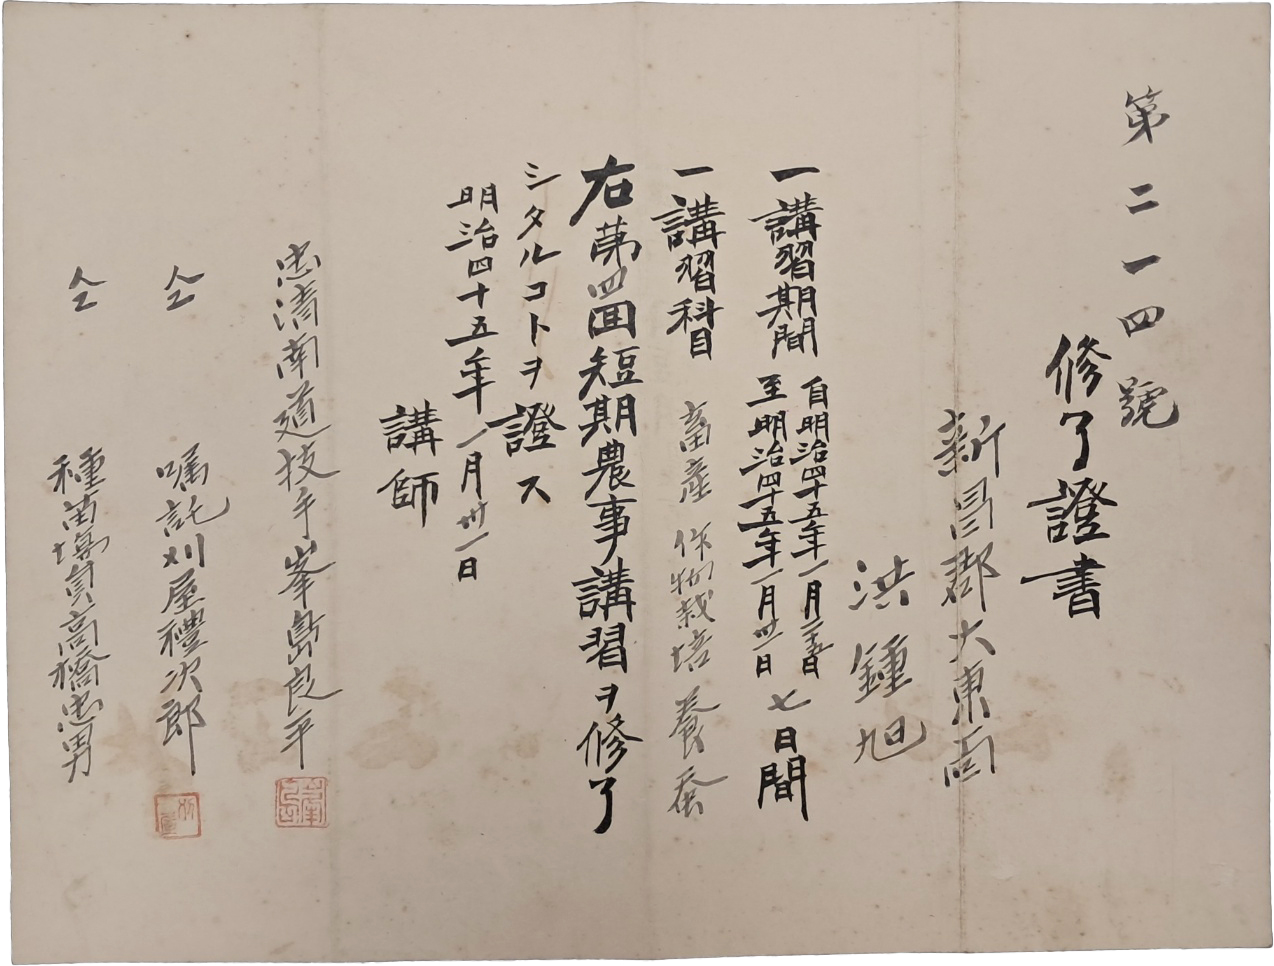 第二一四號
修了證書
新昌郡大東面
洪鍾旭
一講習期間 自明治四十五年一月二十五日
至明治四十五年一月卅一日 七日間
一講習科目 畜産 作物栽培 養蚕
右第四回短期農事講習ヲ修了
シタルコトヲ證ス
明治四十五年一月卅一日
講師
忠清南道技手峯島良平
仝 嘱託刈屋禮次郎
仝 種苗塲員高橋忠男